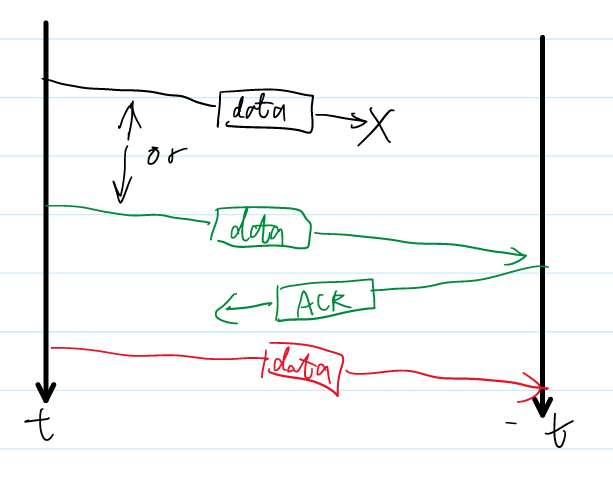 data X
or
data
ACK
data
t
t